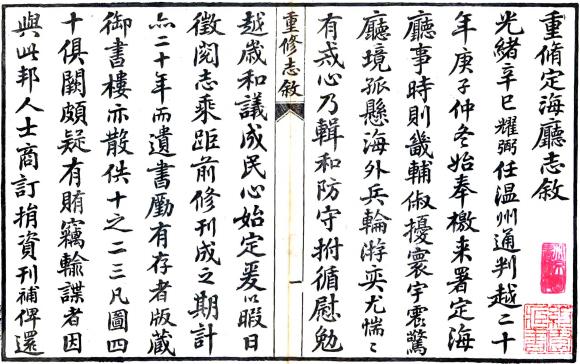 重脩定海廳志敘
光緒辛巳耀弼任温州通判越二十
年庚子仲冬始奉檄来署定海
廳事時則畿輔俶擾寰宇震驚
廳境孤懸海外兵輪游奕尤惴〻
有戒心乃輯和防守拊循慰勉
重修志敘
越歲和議成民心始定爰以暇日
徵閱志乘距前修刊成之期計
亦二十年而遺書有存者版藏
御書樓亦散佚十之二三凡圖四
十俱闕頗疑有賄竊輸諜者因
與此邦人士商訂捐資刊補俾還